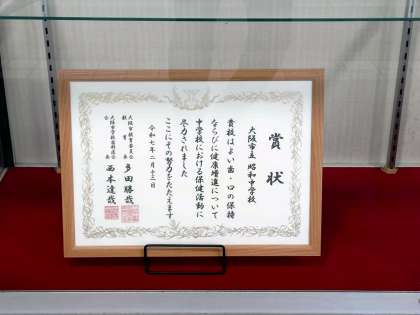 賞状
大阪市立 昭和中学校
貴校はよい歯・口の保持
ならびに健康増進について
中学校における保健活動に
尽力されました
ここにその努力をたたえます
令和七年二月十三日
大阪市教育委員会
教育長 多田勝哉
大阪市学校歯科医会
会長 西本達哉